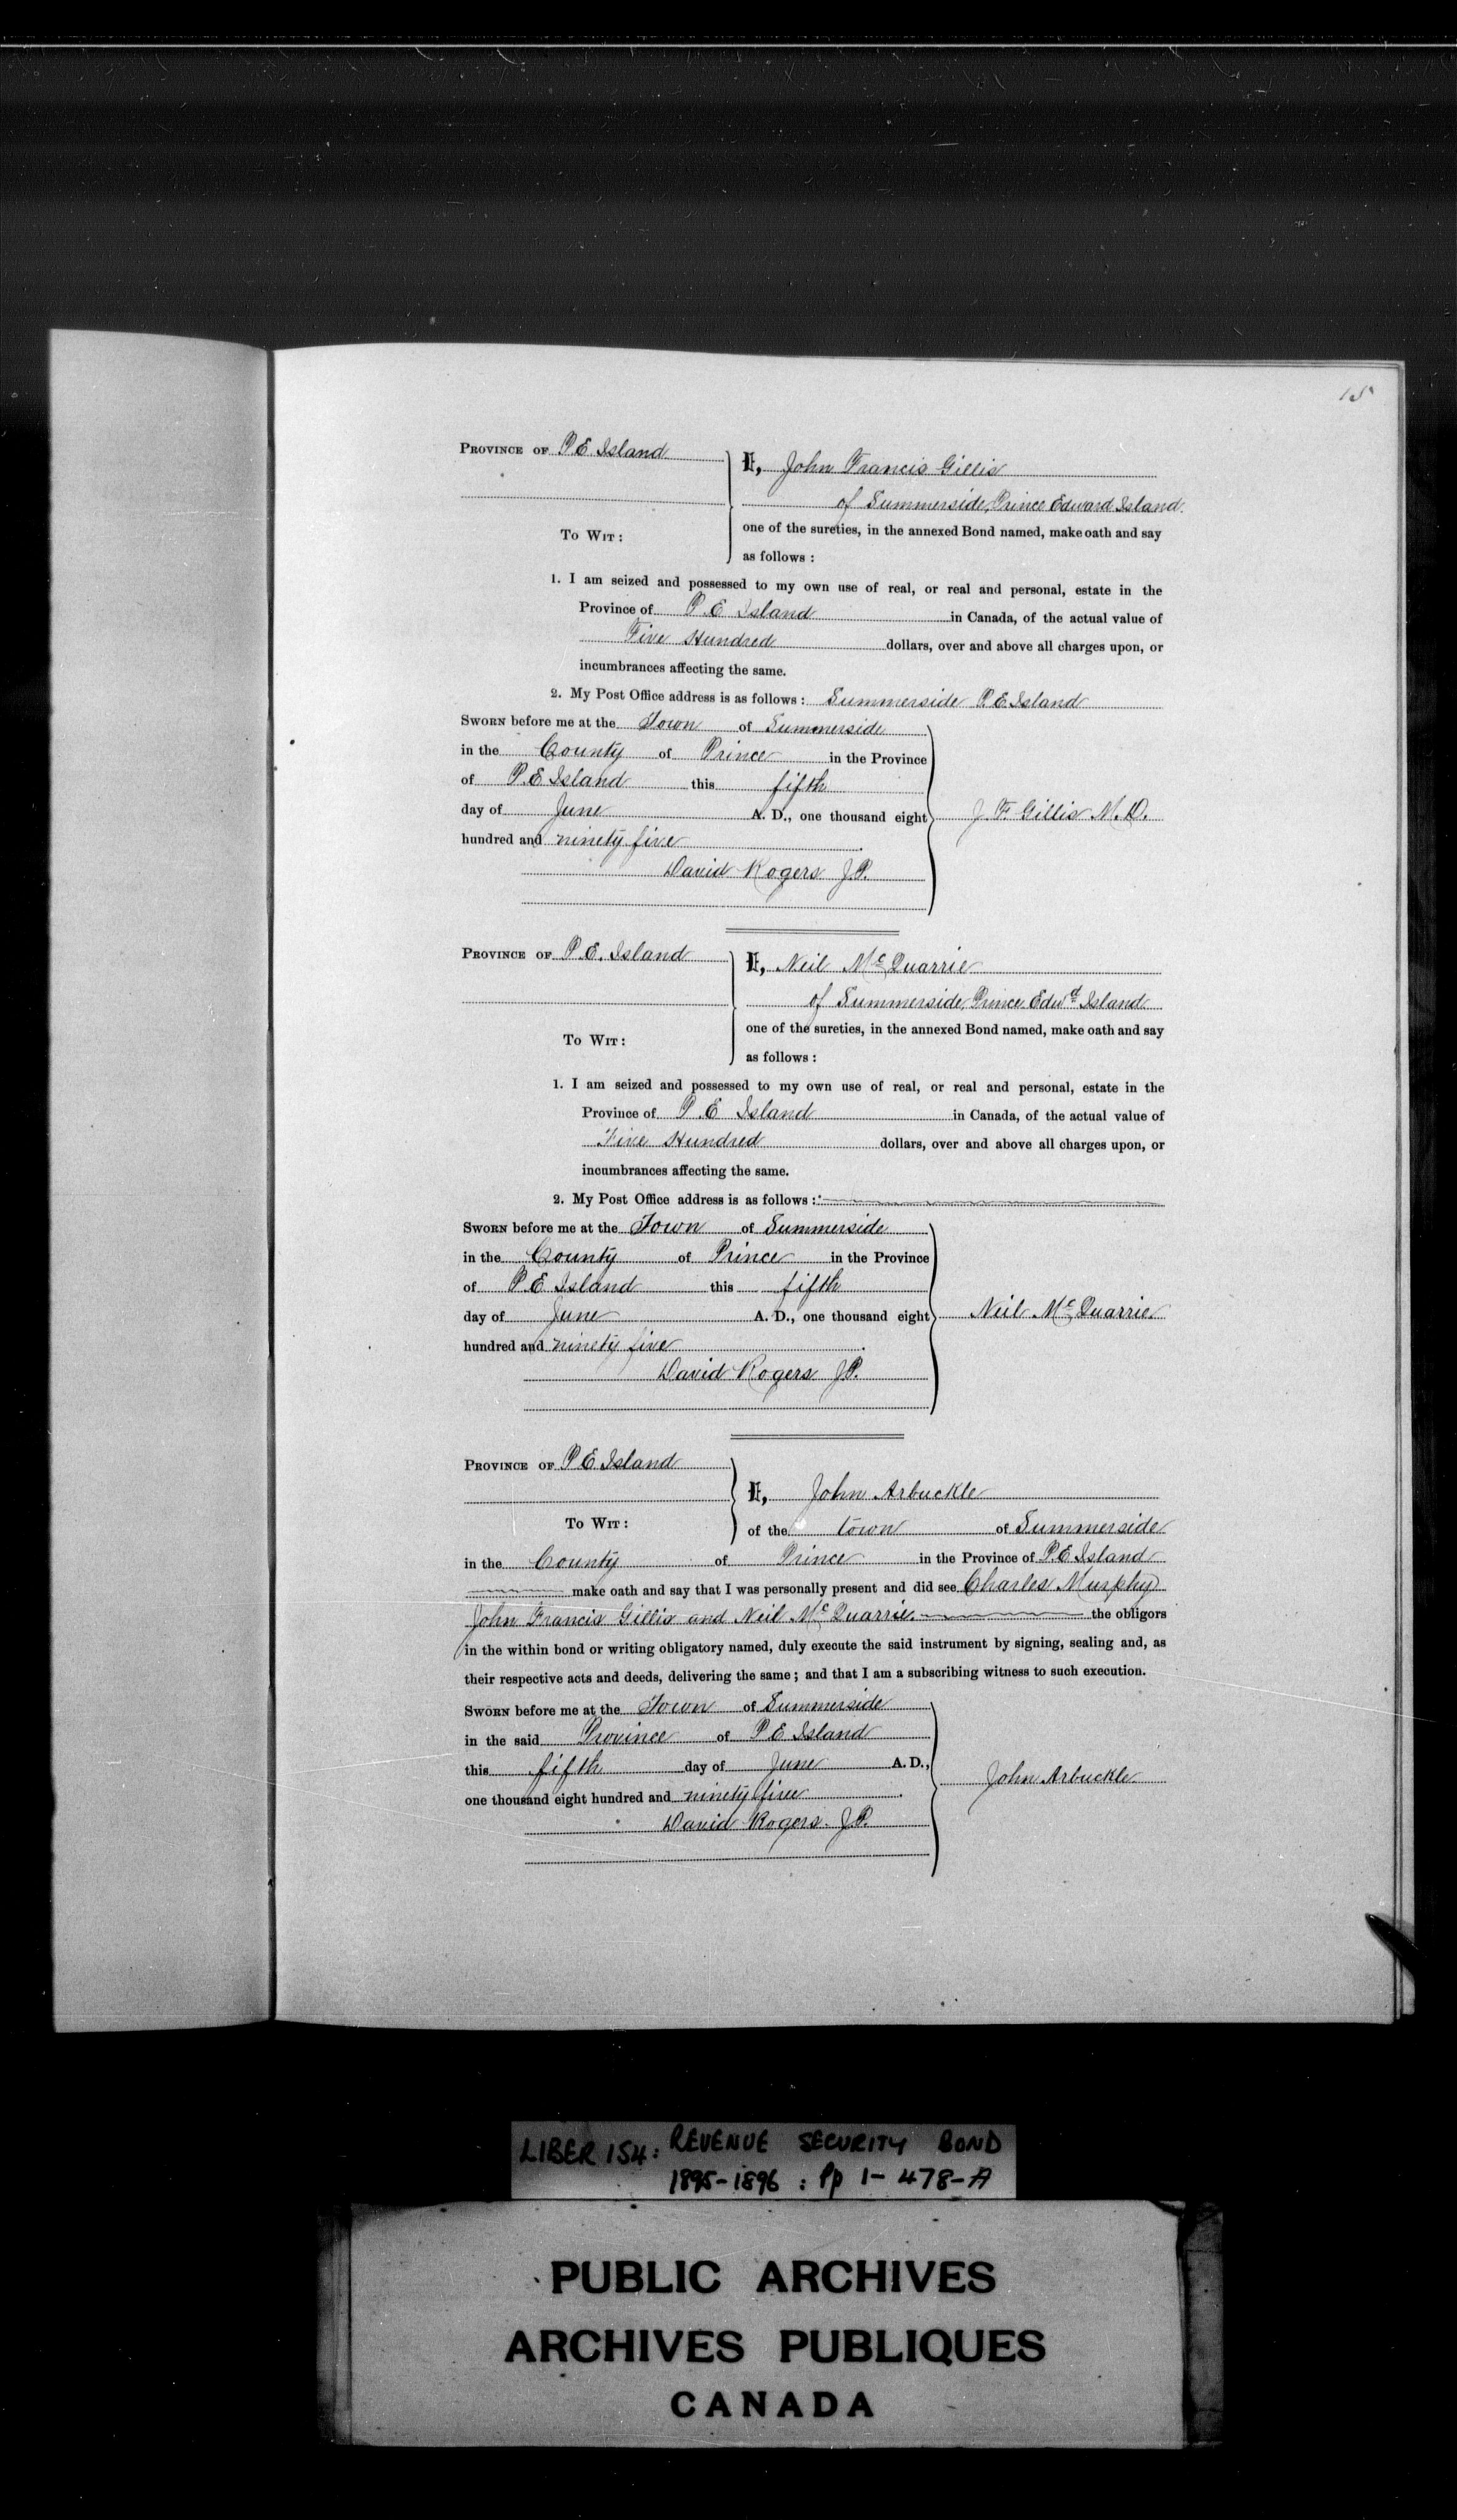 15
Province of P E Island
I, John Francis Gillis
of Summerside, Prince Edward Island.
To Wit:
one of the sureties, in the annexed Bond named, make oath and say
as follows :
1. I am seized and possessed to my own use of real, or real and personal, estate in the
Province of P. E Island in Canada, of the actual value of
Five Hundred dollars, over and above all charges upon, or
incumbrances affecting the same.
2. My Post Office address is as follows : Summerside P. E Island
Sworn before me at the Town of Summerside
in the County of Prince in the Province
of P. E Island this fifth
day of June A. D., one thousand eight
hundred and ninety five
J. F. Gillis M. D.
David Rogers J.P.
Province of P. E. Island
I, Neil McQuarrie
of Summerside, Prince Edwd Island
To Wit:
one of the sureties, in the annexed Bond named, make oath and say
as follows :
1. I am seized and possessed to my own use of real, or real and personal, estate in the
Province of P. E Island in Canada, of the actual value of
Five Hundred dollars, over and above all charges upon, or
incumbrances affecting the same.
2. My Post Office address is as follows :
Sworn before me at the Town of Summerside
in the County of Prince in the Province
of P. E Island this fifth
day of June A. D., one thousand eight
hundred and ninety five
Neil McQuarrie
David Rogers J.P.
Province of P E Island
I, John Arbuckle
To Wit:
of the town of Summerside
in the County of Prince in the Province of P. E Island
make oath and say that I was personally present and did see Charles Murphy
John Francis Gillis and Neil McQuarrie. the obligors
in the within bond or writing obligatory named, duly execute the said instrument by signing, sealing and, as
their respective acts and deeds, delivering the same ; and that I am a subscribing witness to such execution.
Sworn before me at the Town of Summerside
in the said Province of P E Island
this fifth day of June A. D.,
one thousand eight hundred and ninety five
John Arbuckle
David Rogers. J.P.
LIBER 154: REVENUE SECURITY BOND
1895-1896 : Pp 1- 478-A
PUBLIC ARCHIVES
ARCHIVES PUBLIQUES
CANADA